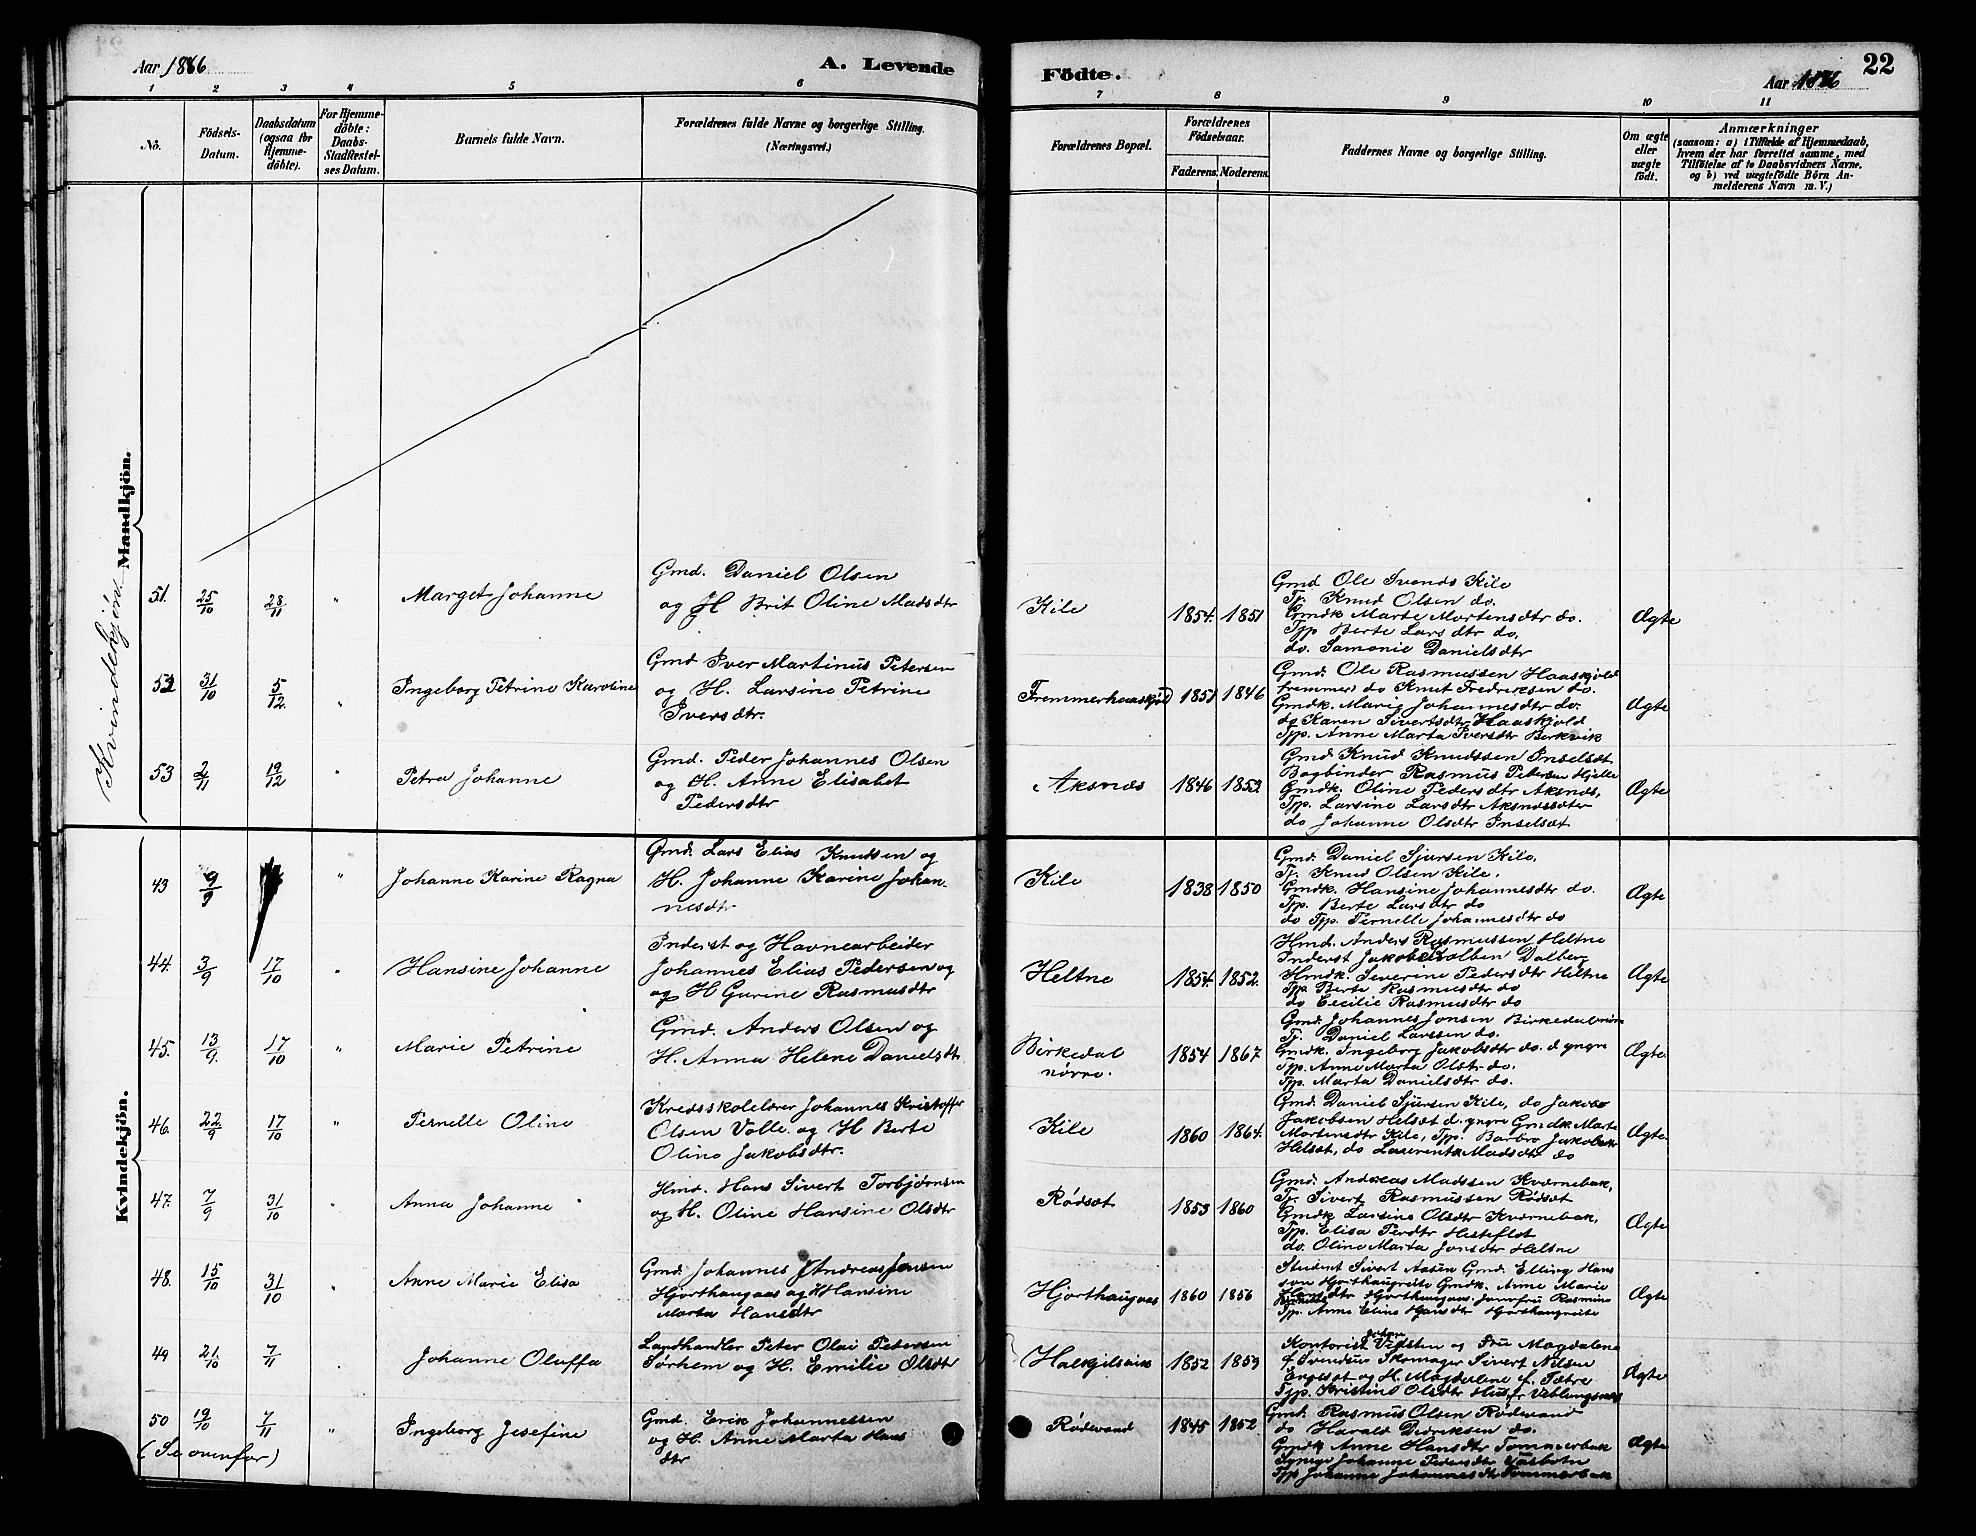 Aar 1886
A. Levende
Födte.
Aar 1886
22
1 2 3 4 5 6 7 8 9 10 11
No.
Födsels-
Datum.
Daabsdatum
(ogsaa for
Hjemme-
döbte).
For Hjemme-
döbte:
Daabs-
Stadfæstel-
ses Datum.
Barnets fulde Navn.
Forældrenes fulde Navne og borgerlige Stilling.
(Næringsvei.)
Forældrenes Bopæl.
Forældrenes
Födselsaar.
Faderens. Moderens.
Faddernes Navne og borgerlige Stilling.
Om ægte
eller
uægte
födt.
Anmærkninger
(saasom: a) i Tilfælde af Hjemmedaab,
hvem der har forrettet samme, med
Tilföielse af to Daabsvidners Navne.
og b) ved uægtefödte Börn An-
melderens Navn m. V.)
Mandkjön.
Kvindekjön
51. 25/10 28/11 " Marget Johanne
Gmd. Daniel Olsen
og H Brit Oline Madsdtr
Kile 1854. 1851
Gmd Ole Svends Kile
Tj. Knud Olsen do.
Gmdk Marte Mortensdtr do.
Tjp Berte Larsdtr do.
do. Samonie Danielsdtr
Ægte
52 31/10 5/12. " Ingeborg Petrine Karoline
Gmd Iver Martinus Petersen
og H. Larsine Petrine
Iversdtr.
Fremmerhaaskjold 1851 1846
Gmd. Ole Rasmussen Haaskjold
fremmer, do Knut Fredriksen do.
Gmdk. Marie Johannesdtr do.
do Karen Sivertsdtr Haaskjold
Tjp. Anne Marta Iversdtr Berkvik
Ægte
53 2/11 19/12 " Petra Johanne
Gmd. Peder Johannes Olsen
og H. Anne Elisabet
Pedersdtr
Aksnæs 1846 1852.
Gmd Knud Knudssen Inselsæt
Bogbinder Rasmus Petersen Hjelle
Gmdk. Oline Pedersdtr Aksnæs,
Tjp. Larsine Larsdtr Aksnæssæter
do Johanne Olsdtr Inselsæt
Ægte
Kvindekjön.
43 9/9 " Johanne Karine Ragna
Gmd. Lars Elias Knudsen og
H. Johanne Karine Johan-
nesdtr
Kile 1838 1850
Gmd. Daniel Sjursen Kile.
Tj. Knud Olsen Kile.
Gmdk. Hansine Johannesdtr do.
Tjp. Berte Larsdtr do
do Tjp. Pernelle Johannesdtr do
Ægte
44. 3/9 17/10 " Hansine Johanne
Inderst og Havnearbeider
Johannes Elias Pedersen og
og H Gurine Rasmusdtr
Heltne 1854. 1852.
Hmd. Anders Rasmussen Heltne
Inderst Jakob Kolben Dalberg
Hmdk. Severine Pedersdtr Heltne
Tjp Berte Rasmusdtr do
do Cecilie Rasmusdtr do
Ægte
45. 13/9. 17/10 " Marie Petrine
Gmd. Anders Olsen og
H. Anna Helene Danielsdtr
Birkedal
nörre. 1854 1867.
Gmd. Johannes Jonsen Birkedalnörre
Tj. Daniel Larssen do.
Gmdk. Ingeborg Jakobsdtr do. d yngre
Tjp. Anne Marta Olsdtr do.
Tjp. Marta Danielsdtr do.
Ægte.
46. 22/9 17/10 " Pernelle Oline
Kredsskolelærer Johannes Kristoffer
Olsen Volle og H Berte
Oline Jakobsdtr.
Kile 1860 1864.
Gmd. Daniel Sjursen Kile, do Jakob
Jakobsen Helsæt d. yngre Gmdk Marte
Mortensdtr Kile, Tjp. Barbro Jakobsdtr
Helsæt, do Laurentze Madsdtr do
Ægte.
47. 7/9 31/10 " Anna Johanne
Hmd. Hans Sivert Torbjørnsen
og H. Oline Hansine Olsdtr
Rødsæt 1853 1860
Gmd. Andreas Madssen Kværnebak,
Tj. Sivert Rasmussen Rødset
Gmdk Larsine Olsdtr Kværnebak,
Tjp. Elisa Perdtr Hesteflot
do. Oline Marta Jonsdtr Heltne
Ægte
48. 15/10 31/10 " Anne Marie Elisa
Gmd. Johannes Andreas Jensen
Hjorthaugaas og H Hansine
Marta Hansdtr
Hjorthaugaas 1860 1856
Student Sivert Aasen Gmd. Elling Hans
son Hjorthaugreite Gmdk. Anne Marie
Hansdtr Hjorthaugaas, Jomfru Rasmine
Tjp. Anne Eline Hansdtr Hjorthaugreite
Ægte
49 21./10 7/11 Johanne Oluffa
Landhandler Peter Olai Peterssen
Sørhem og H. Emilie Olsdtr
1852 1859
Kontorist Johan Vedsten og Fru Magdalena
f. Svendsen Skomager Sivert Nilsen
Engeset og H. Magdalene f. Sætre
Tjp. Kristine Olsdtr Veblungsnæs
Ægte
50 19/10 7/11 " Ingeborg Josefine
(Se ovenfor)
Gmd. Erik Johannessen
og H. Anne Marta Hans
dtr
Rødevand 1845 1852
Gmd. Rasmus Olsen Rødevand
do Harald Didriksen do.
Gmdk Anne Hansdtr Tommerbak
Johanne Pedersdtr
Tjp Johanne Johannesdtr Tommerbak
Ægte